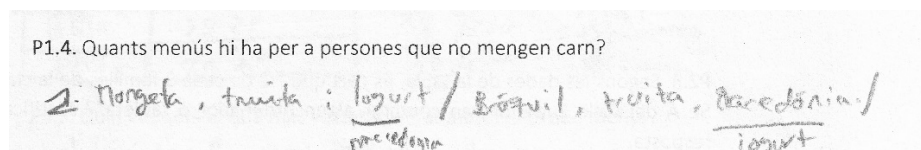 P1.4. Quants menús hi ha per a persones que no mengen carn?
2. Mongeta, truita i Iogurt / Bròquil, truita, Macedònia /
macedonia iogurt